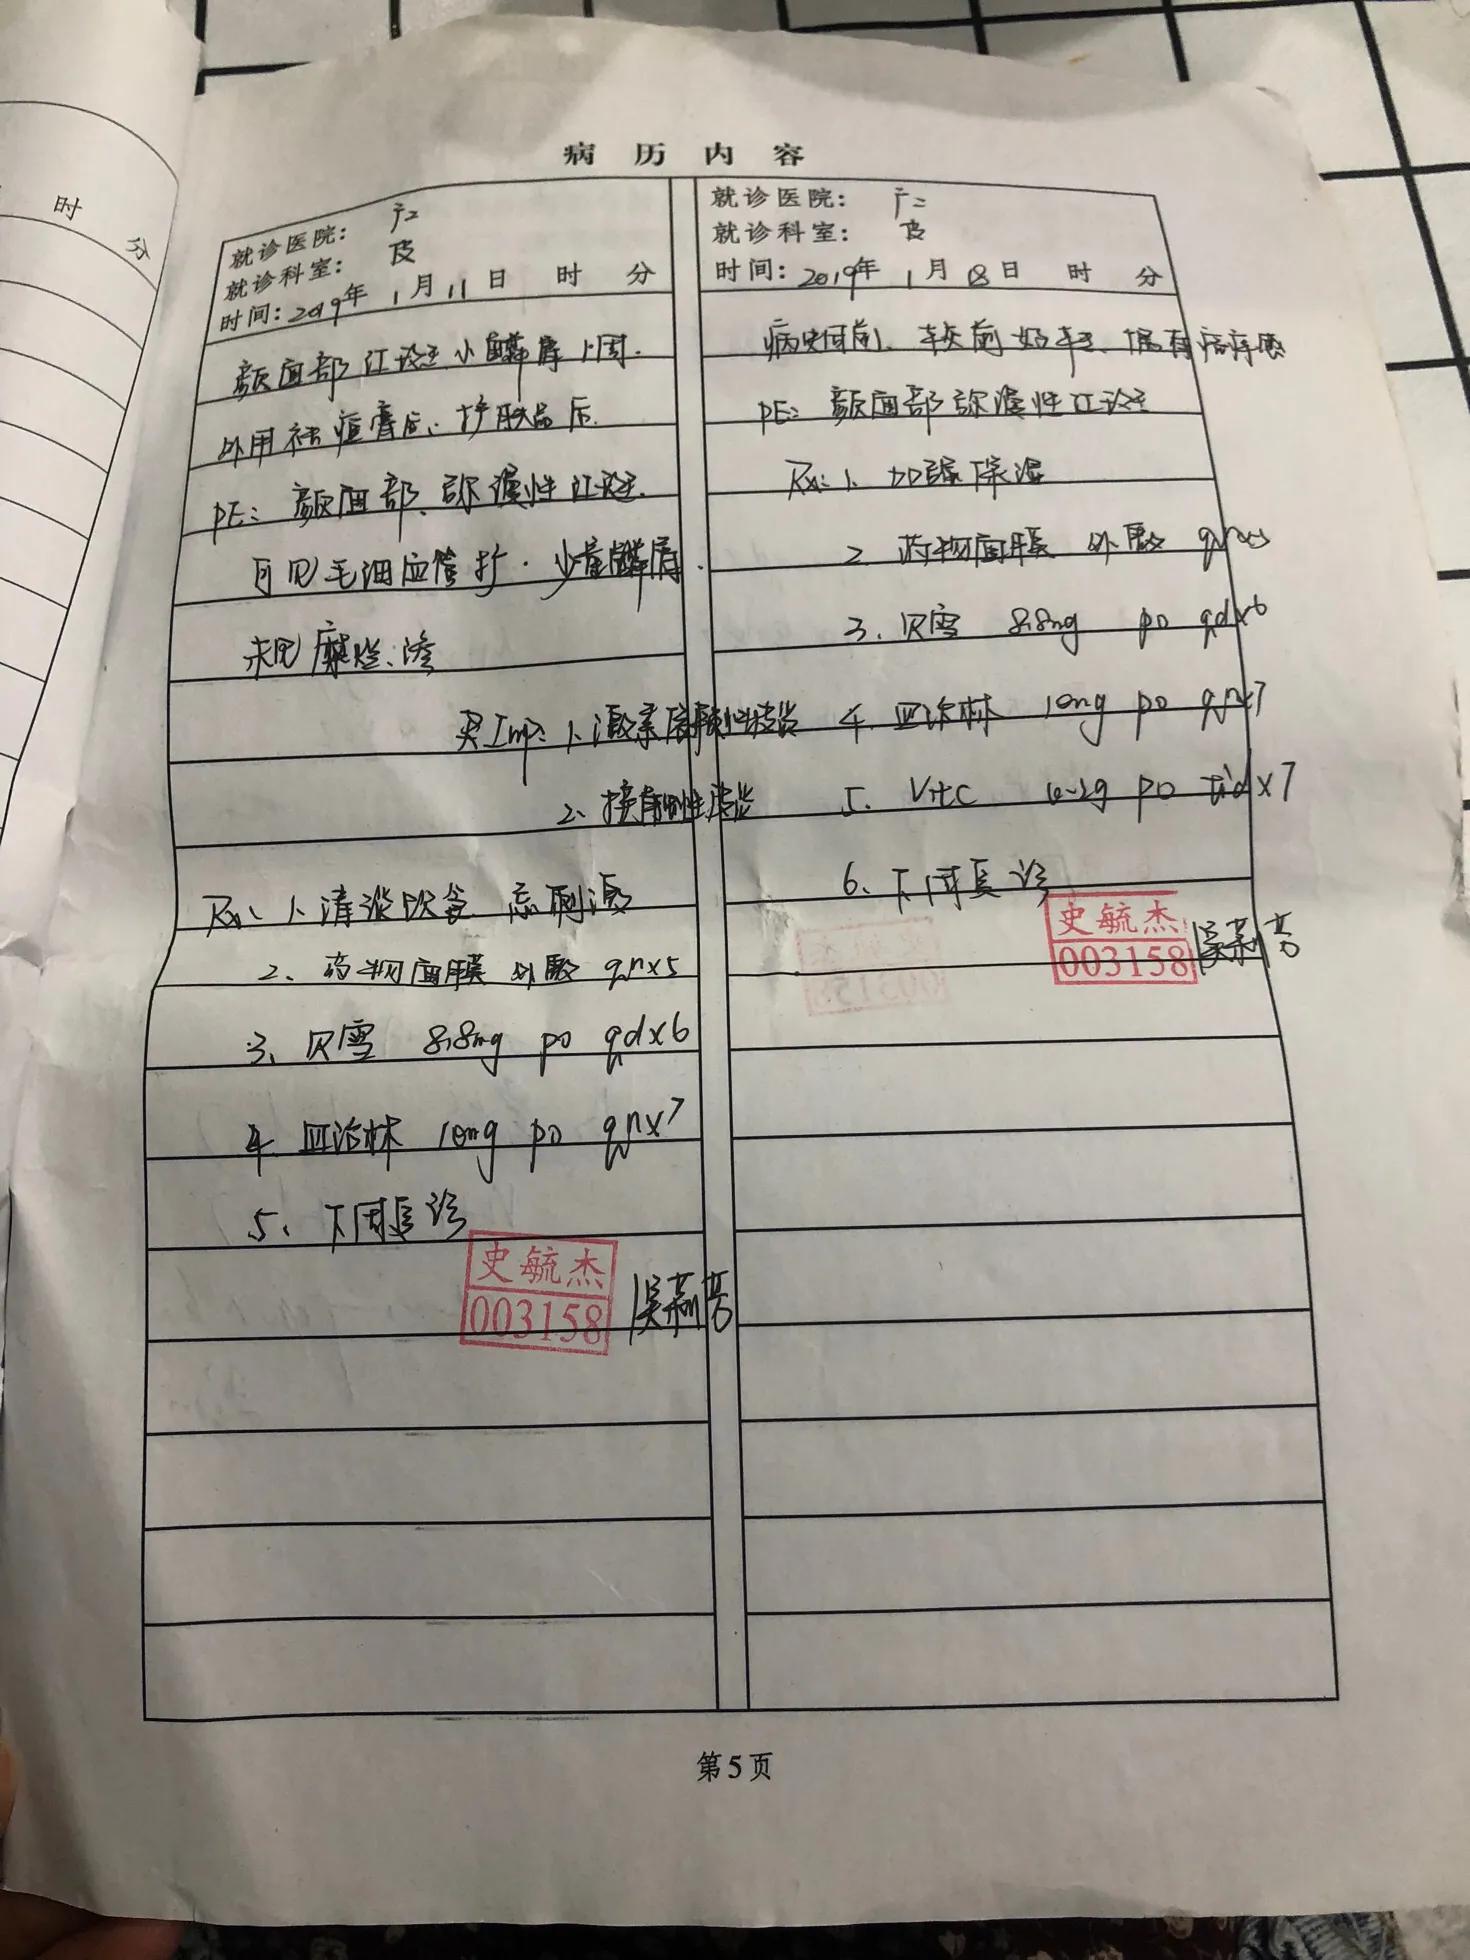 时
分
病历内容
就诊医院：广二
就诊科室：皮
时间：2019年1月11日 时 分
颜面部红斑 小鳞屑1周.
外用祛痘膏后、护肤品后.
PE：颜面部、弥漫性红斑.
可见毛细血管扩.少量鳞屑.
未见糜烂、渗
Imp：1、激素依赖性皮炎
2、接触性皮炎
Rx：1、清淡饮食 忌刺激
2、药物面膜 外敷 qn×5
3、贝雪 8.8mg po qd×6
4、亚治林 10mg po qn×7
5、下周复诊
史毓杰
003158
吴莉芳
就诊医院：广二
就诊科室：皮
时间：2019年1月18日 时 分
病史同前、较前好转、偶有瘙痒感
PE：颜面部弥漫性红斑
Rx：1、加强保湿
2、药物面膜 外敷 qn×5
3、贝雪 8.8mg po qd×6
4、亚治林 10mg po qn×7
5、VitC 0.2g po tid×7
6、下周复诊
史毓杰
003158
吴莉芳
第5页